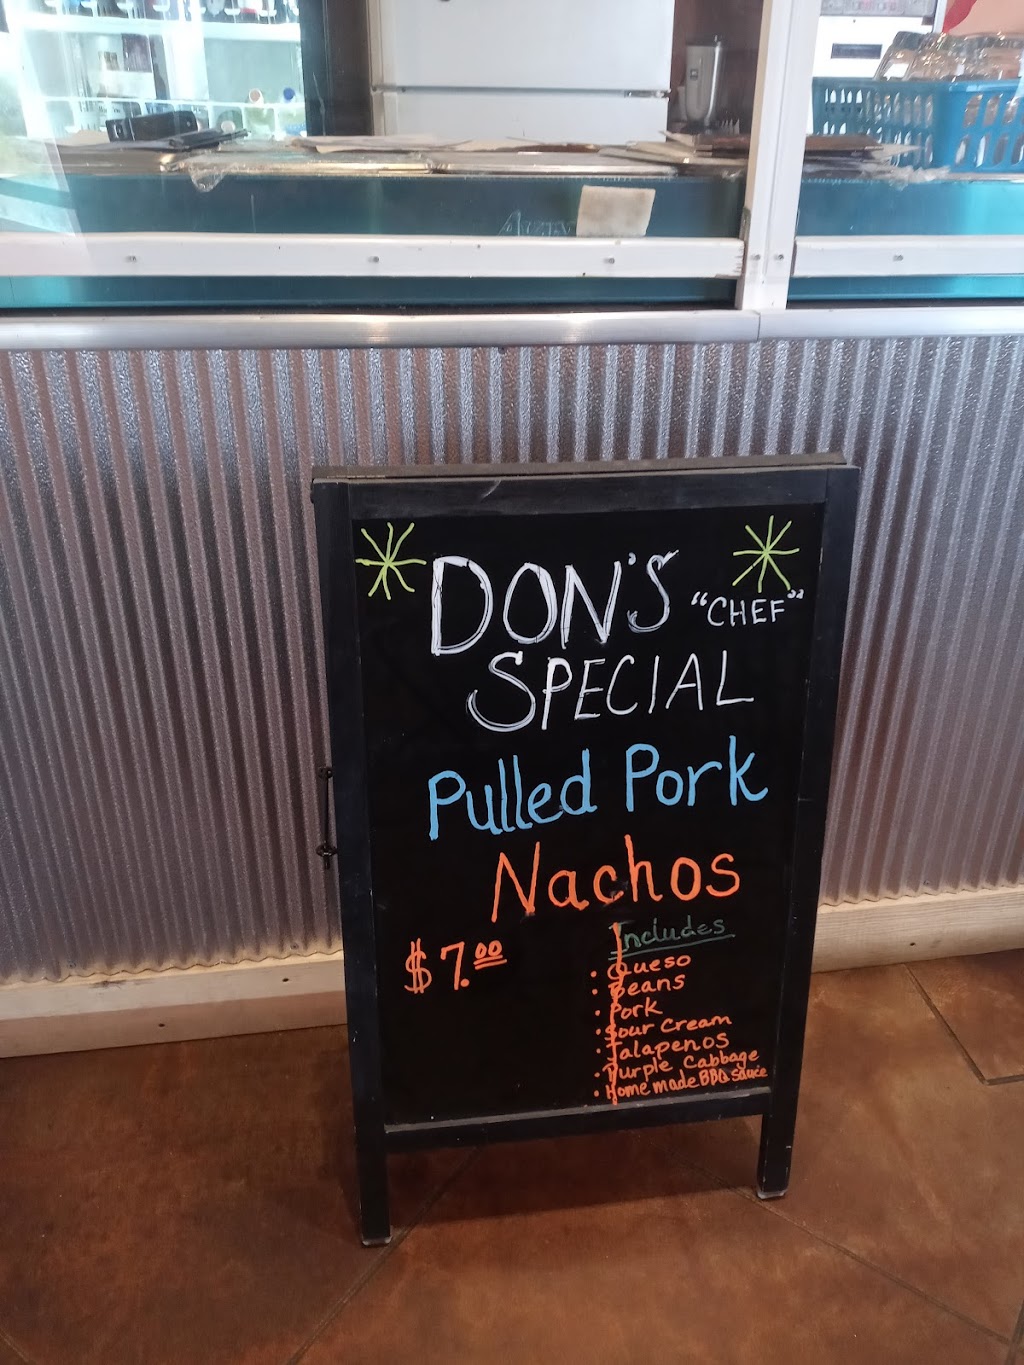 DON'S "CHEF"
SPECIAL
Pulled Pork
Nachos
$7.00
Includes
• Queso
• Beans
• Pork
• Sour Cream
• Jalapenos
• Purple Cabbage
• Homemade BBQ Sauce